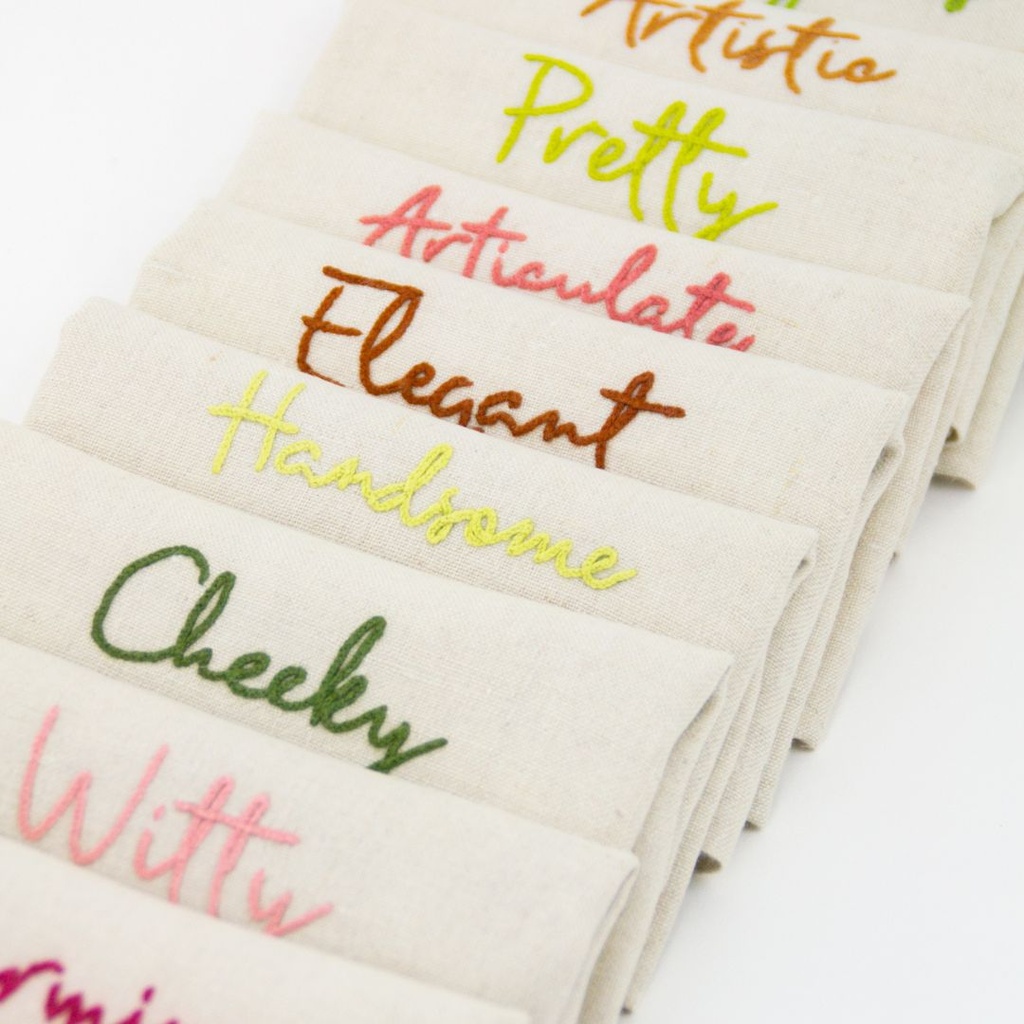 Artistic
Pretty
Articulate
Elegant
Handsome
Cheeky
Witty